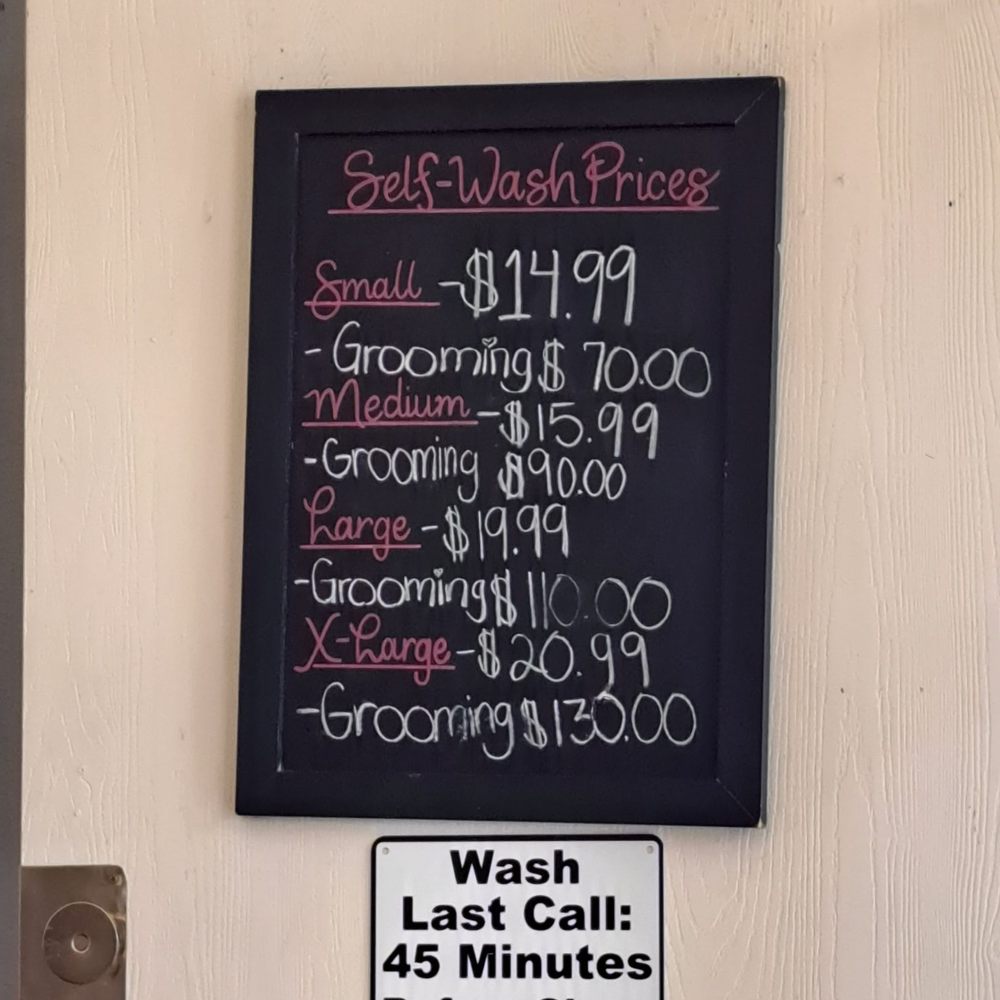 Self-Wash Prices
Small - $14.99
- Grooming $ 70.00
Medium - $15.99
- Grooming $90.00
Large - $19.99
- Grooming $110.00
X-Large - $20.99
- Grooming $130.00
Wash
Last Call:
45 Minutes